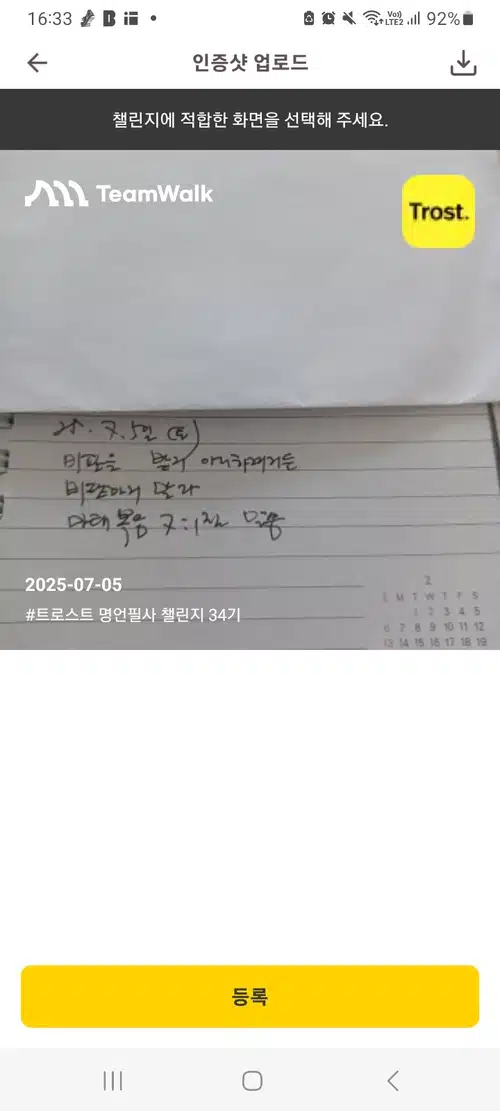 16:33
92%
인증샷 업로드
챌린지에 적합한 화면을 선택해 주세요.
TeamWalk
Trost.
25. 7. 5일 (토)
비판을 받지 아니하려거든
비판하지 말라
마태복음 7:1절 말씀
2025-07-05
#트로스트 명언필사 챌린지 34기
2
S M T W T F S
1 2 3 4 5
6 7 8 9 10 11 12
13 14 15 16 17 18 19
등록